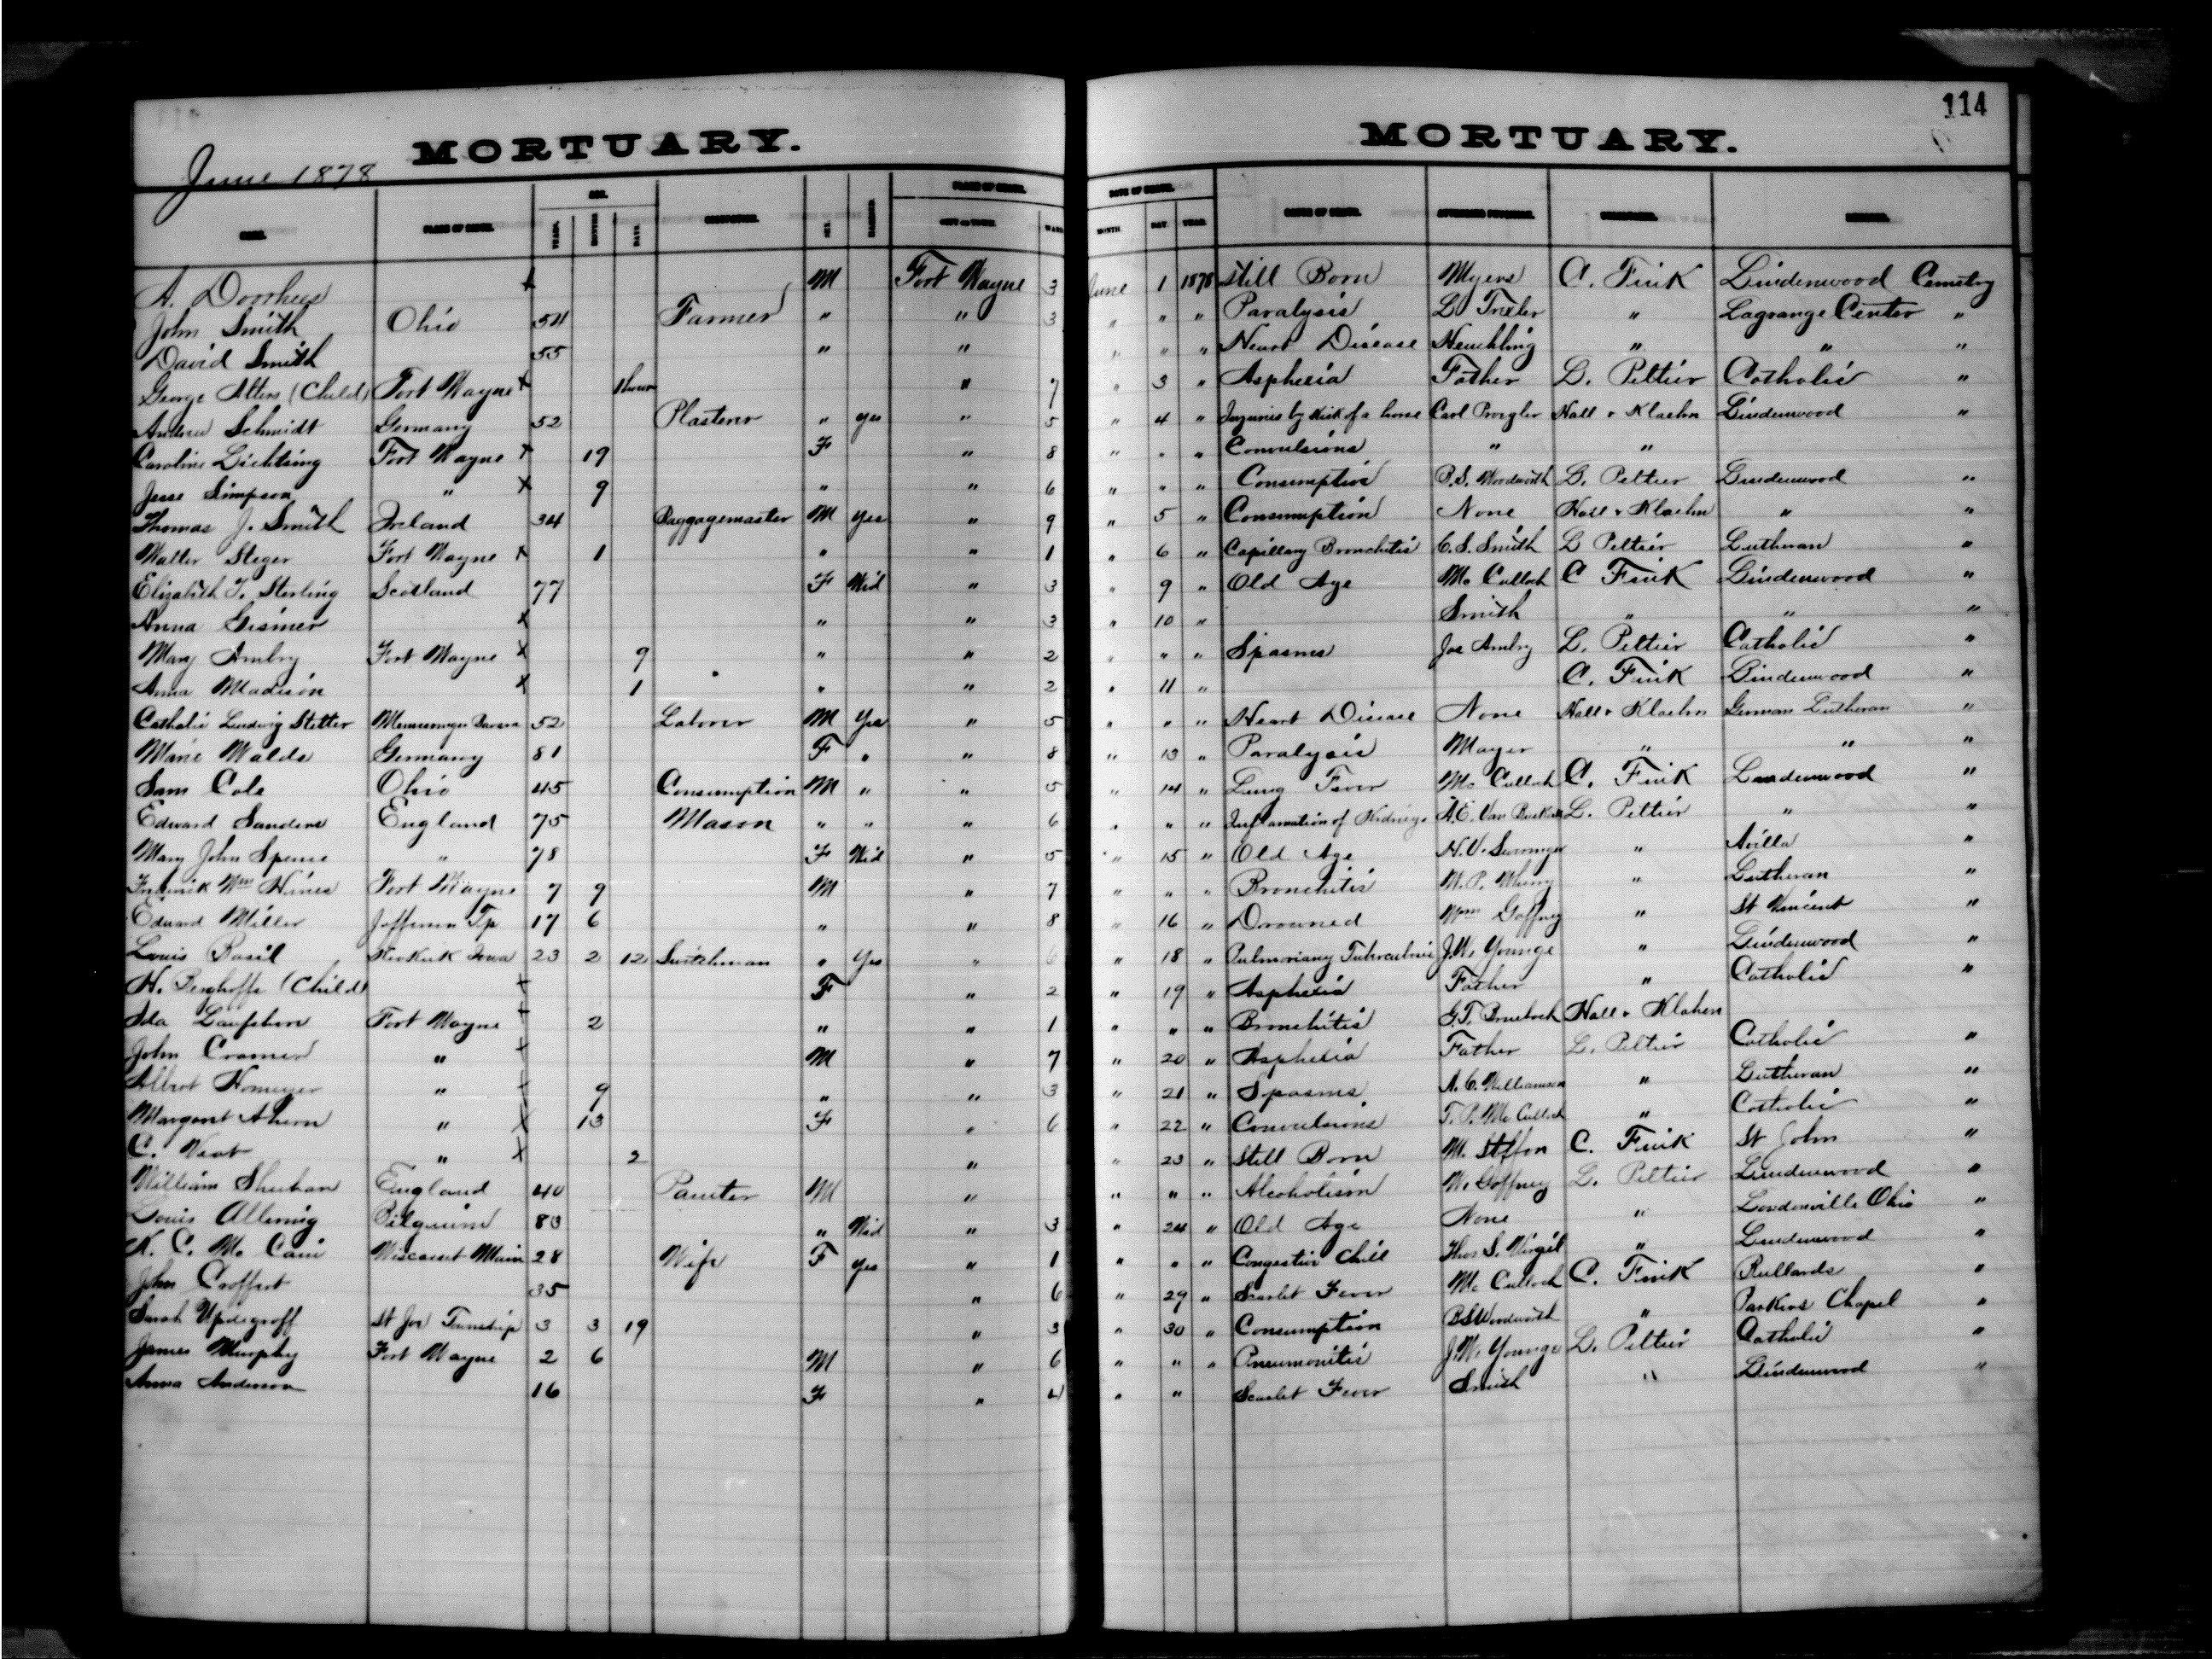 114
MORTUARY. MORTUARY.
June 1878
PLACE OF DEATH. DATE OF DEATH.
AGE.
NAME. PLACE OF BIRTH. YEARS. MONTHS. DAYS. OCCUPATION. SEX. MARRIED. CITY OR TOWN. WARD MONTH DAY YEAR CAUSE OF DEATH. ATTENDING PHYSICIAN. UNDERTAKER.
A. Doorhees x M Fort Wayne 3 June 1 1878 Still Born Myers C. Fink Lindenwood Cemetry
John Smith Ohio 54 Farmer " " 3 " " " Paralysis L Trexler " Lagrange Center "
David Smith 55 " " " " " Heart Disease Heuchling " " "
George Alters (Child) Fort Wayne x 1 hour " 7 " 3 " Asphexia Father L. Peltier Catholic "
Andrew Schmidt Germany 52 Plasterer " yes " 5 " 4 " Injuries by kick of a horse Carl Proegler Hall & Klaehn Lindenwood "
Caroline Fort Wayne x 19 F " 8 " " " Convulsions " "
Jesse Simpson " x 9 " " 6 " " " Consumption B.S. Woodworth L. Peltier Lindenwood "
Thomas J. Smith Ireland 34 Baggagemaster M Yes " 9 " 5 " Consumption None Hall & Klaehn " "
Walter Steger Fort Wayne x 1 " " 1 " 6 " Capillary Bronchitis C.S. Smith L Peltier Lutheran "
Elizabeth T. Sterling Scotland 77 F Wid " 3 " 9 " Old Age Mc Culloch C Fink Lindenwood "
Anna Gismer x " " 3 " 10 " Smith " " "
Mary Ambry Fort Wayne x 9 " " 2 " " " Spasms Jos Ambry L. Peltier Catholic "
Anna Madison x 1 " " 2 " 11 " C. Fink Lindenwood "
Ludwig Stetter 52 Laborer M Yes " 5 " " " Heart Disease None Hall & Klaehn German Lutheran "
Marie Walda Germany 81 F " " 8 " 13 " Paralysis Mayer " " "
Sam Cole Ohio 45 Consumption M " " 5 " 14 " Lung Fever Mc Culloch C. Fink Lindenwood "
Edward Sanders England 75 Mason " " " 6 " " " Inflamation of Kidneys A.E. Van Buskirk L. Peltier " "
Mary John Spence " 78 F Wid " 5 " 15 " Old Age " Avilla "
Frederick Wm Hines Fort Wayne 7 9 M " 7 " " " Bronchitis W.P. Wherry " Lutheran "
Edward Miller Jefferson Tp 17 6 " " 8 " 16 " Drowned Wm Gaffney " St Vincent "
Louis Basil Keokuk Iowa 23 2 12 Switchman " Yes " 6 " 18 " Pulmonary Tuberculosis J.W. Younge " Lindenwood "
H. Berghoffe (Child) x F " 2 " 19 " Asphexia Father " Catholic "
Ida Fort Wayne x 2 " " 1 " " " Bronchitis G.T. Hall & Klahen
John Cramer " x M " 7 " 20 " Asphexia Father L. Peltier Catholic "
Albert Homeyer " x 9 " " 3 " 21 " Spasms A.C. Williamson " Lutheran "
Margaret Ahern " x 13 F " 6 " 22 " Convulsions T.P. Mc Culloch " Catholic "
C. " x 2 " " 23 " Still Born M. Steffon C. Fink St John "
William Sheehan England 40 Painter M " " " " Alcoholism W. Goffney L. Peltier Lindenwood "
Louis 83 " Wid " 3 " 24 " Old Age None " Loudonville Ohio "
K. C. Mc Cain 28 Wife F yes " 1 " " " Congestive Chill Thos S. Virgil " Lindenwood "
John Croffert 35 " 6 " 29 " Scarlet Fever Mc Culloch C. Fink "
Sarah Updegroff St Joe Township 3 3 19 " 3 " 30 " Consumption BSWoodworth " Parkers Chapel "
James Murphy Fort Wayne 2 6 M " 6 " " " Pneumonitis J.W. Younge L. Peltier Catholic "
Anna Anderson 16 F " 4 " " Scarlet Fever Smith " Lindenwood "